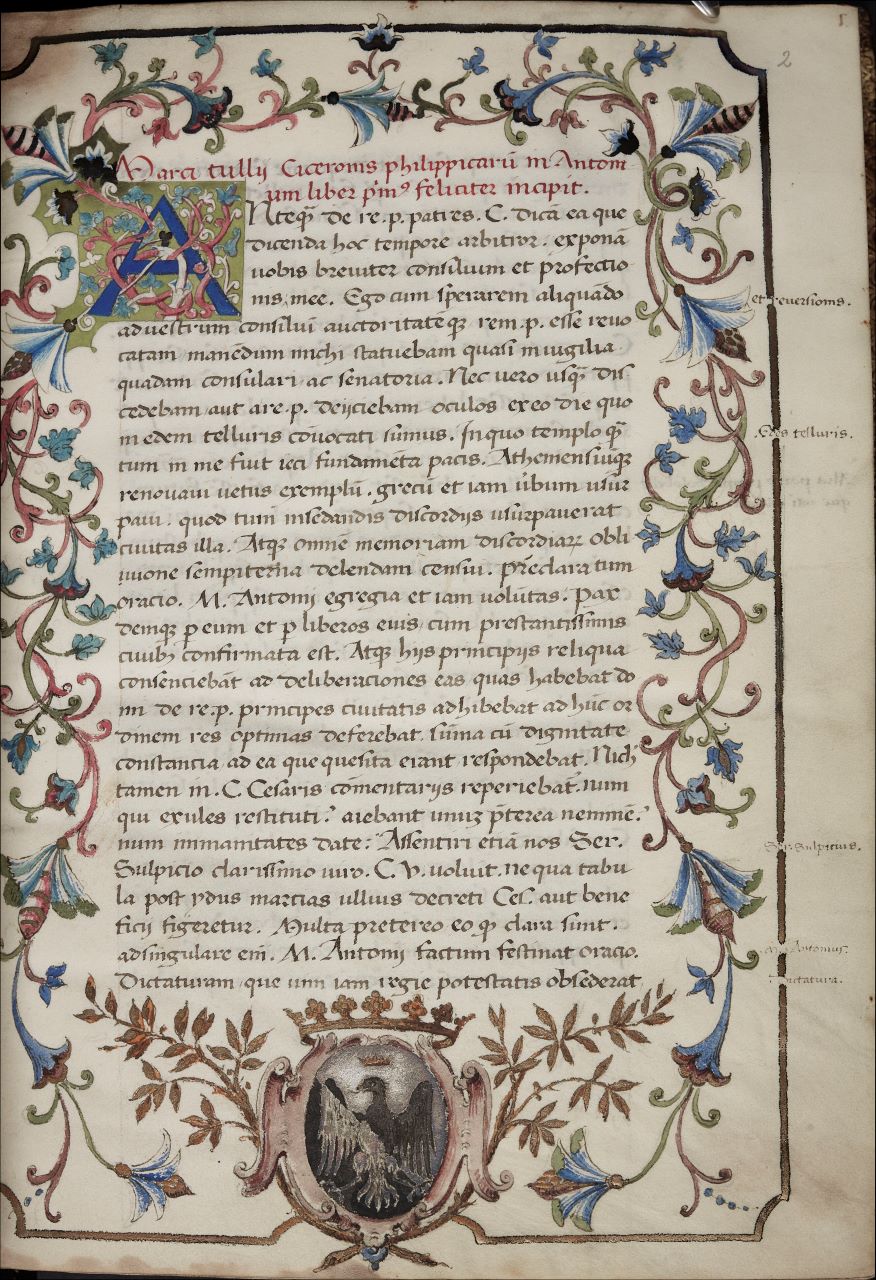 2
Marci tullij Ciceronis philippicarū in Antoni
um liber pim⁹ feliciter incipit.
ANteq̃ de re.p. patres. C. dicā ea que
dicenda hoc tempore arbitror. exponā
uobis breuiter consilium et profectio
nis mee. Ego cum sperarem aliquādo
ad uestrum consiliū auctoritatēqꝫ rem.p. esse reuo
catam manēdum michi statuebam quasi in uigilia
quadam consulari ac senatoria. Nec uero usq̃ dis
cedebam aut a re.p. deijciebam oculos ex eo die quo
in edem telluris cōuocati sumus. In quo templo q̃
tum in me fuit ieci fundamēta pacis. Atheniensiūqꝫ
renouaui uetus exemplū. grecū et iam ùbum usur
paui. quod tum in sedandis discordijs usurpauerat
ciuitas illa. Atqꝫ omnē memoriam discordiaꝝ obli
uione sempiterna delendam censui. Preclara tum
oracio. M. Antonij egregia et iam uoluntas. Pax
deniqꝫ p eum et p liberos euis cum prestantissimis
ciuibꝫ confirmata est. Atqꝫ hijs principijs reliqua
consenciebāt ad deliberaciones eas quas habebat do
mi de re.p. principes ciuitatis adhibebat ad hūc or
dinem res optimas deferebat. sūma cū dignitate
constancia ad ea que quesita erant respondebat. Nich
tamen in. C. Cesaris cōmentarijs reperiebat̃. num
qui exules restituti? aiebant unuꝫ p̃terea neminē?
num immanitates date: Assentiri etiā nos Ser.
Sulpicio clarissimo uiro. C. V. uoluit. ne qua tabu
la post ydus marcias ullius decreti Ces. aut bene
ficij figeretur. Multa pretereo eo q̃ clara sunt.
ad singulare eni. M. Antonij factum festinat oracio.
Dictaturam que uim iam regie potestatis obsederat
et reuersionis.
Edes telluris.
Ser. Sulpicius.
M. Antonius.
Dictatura.